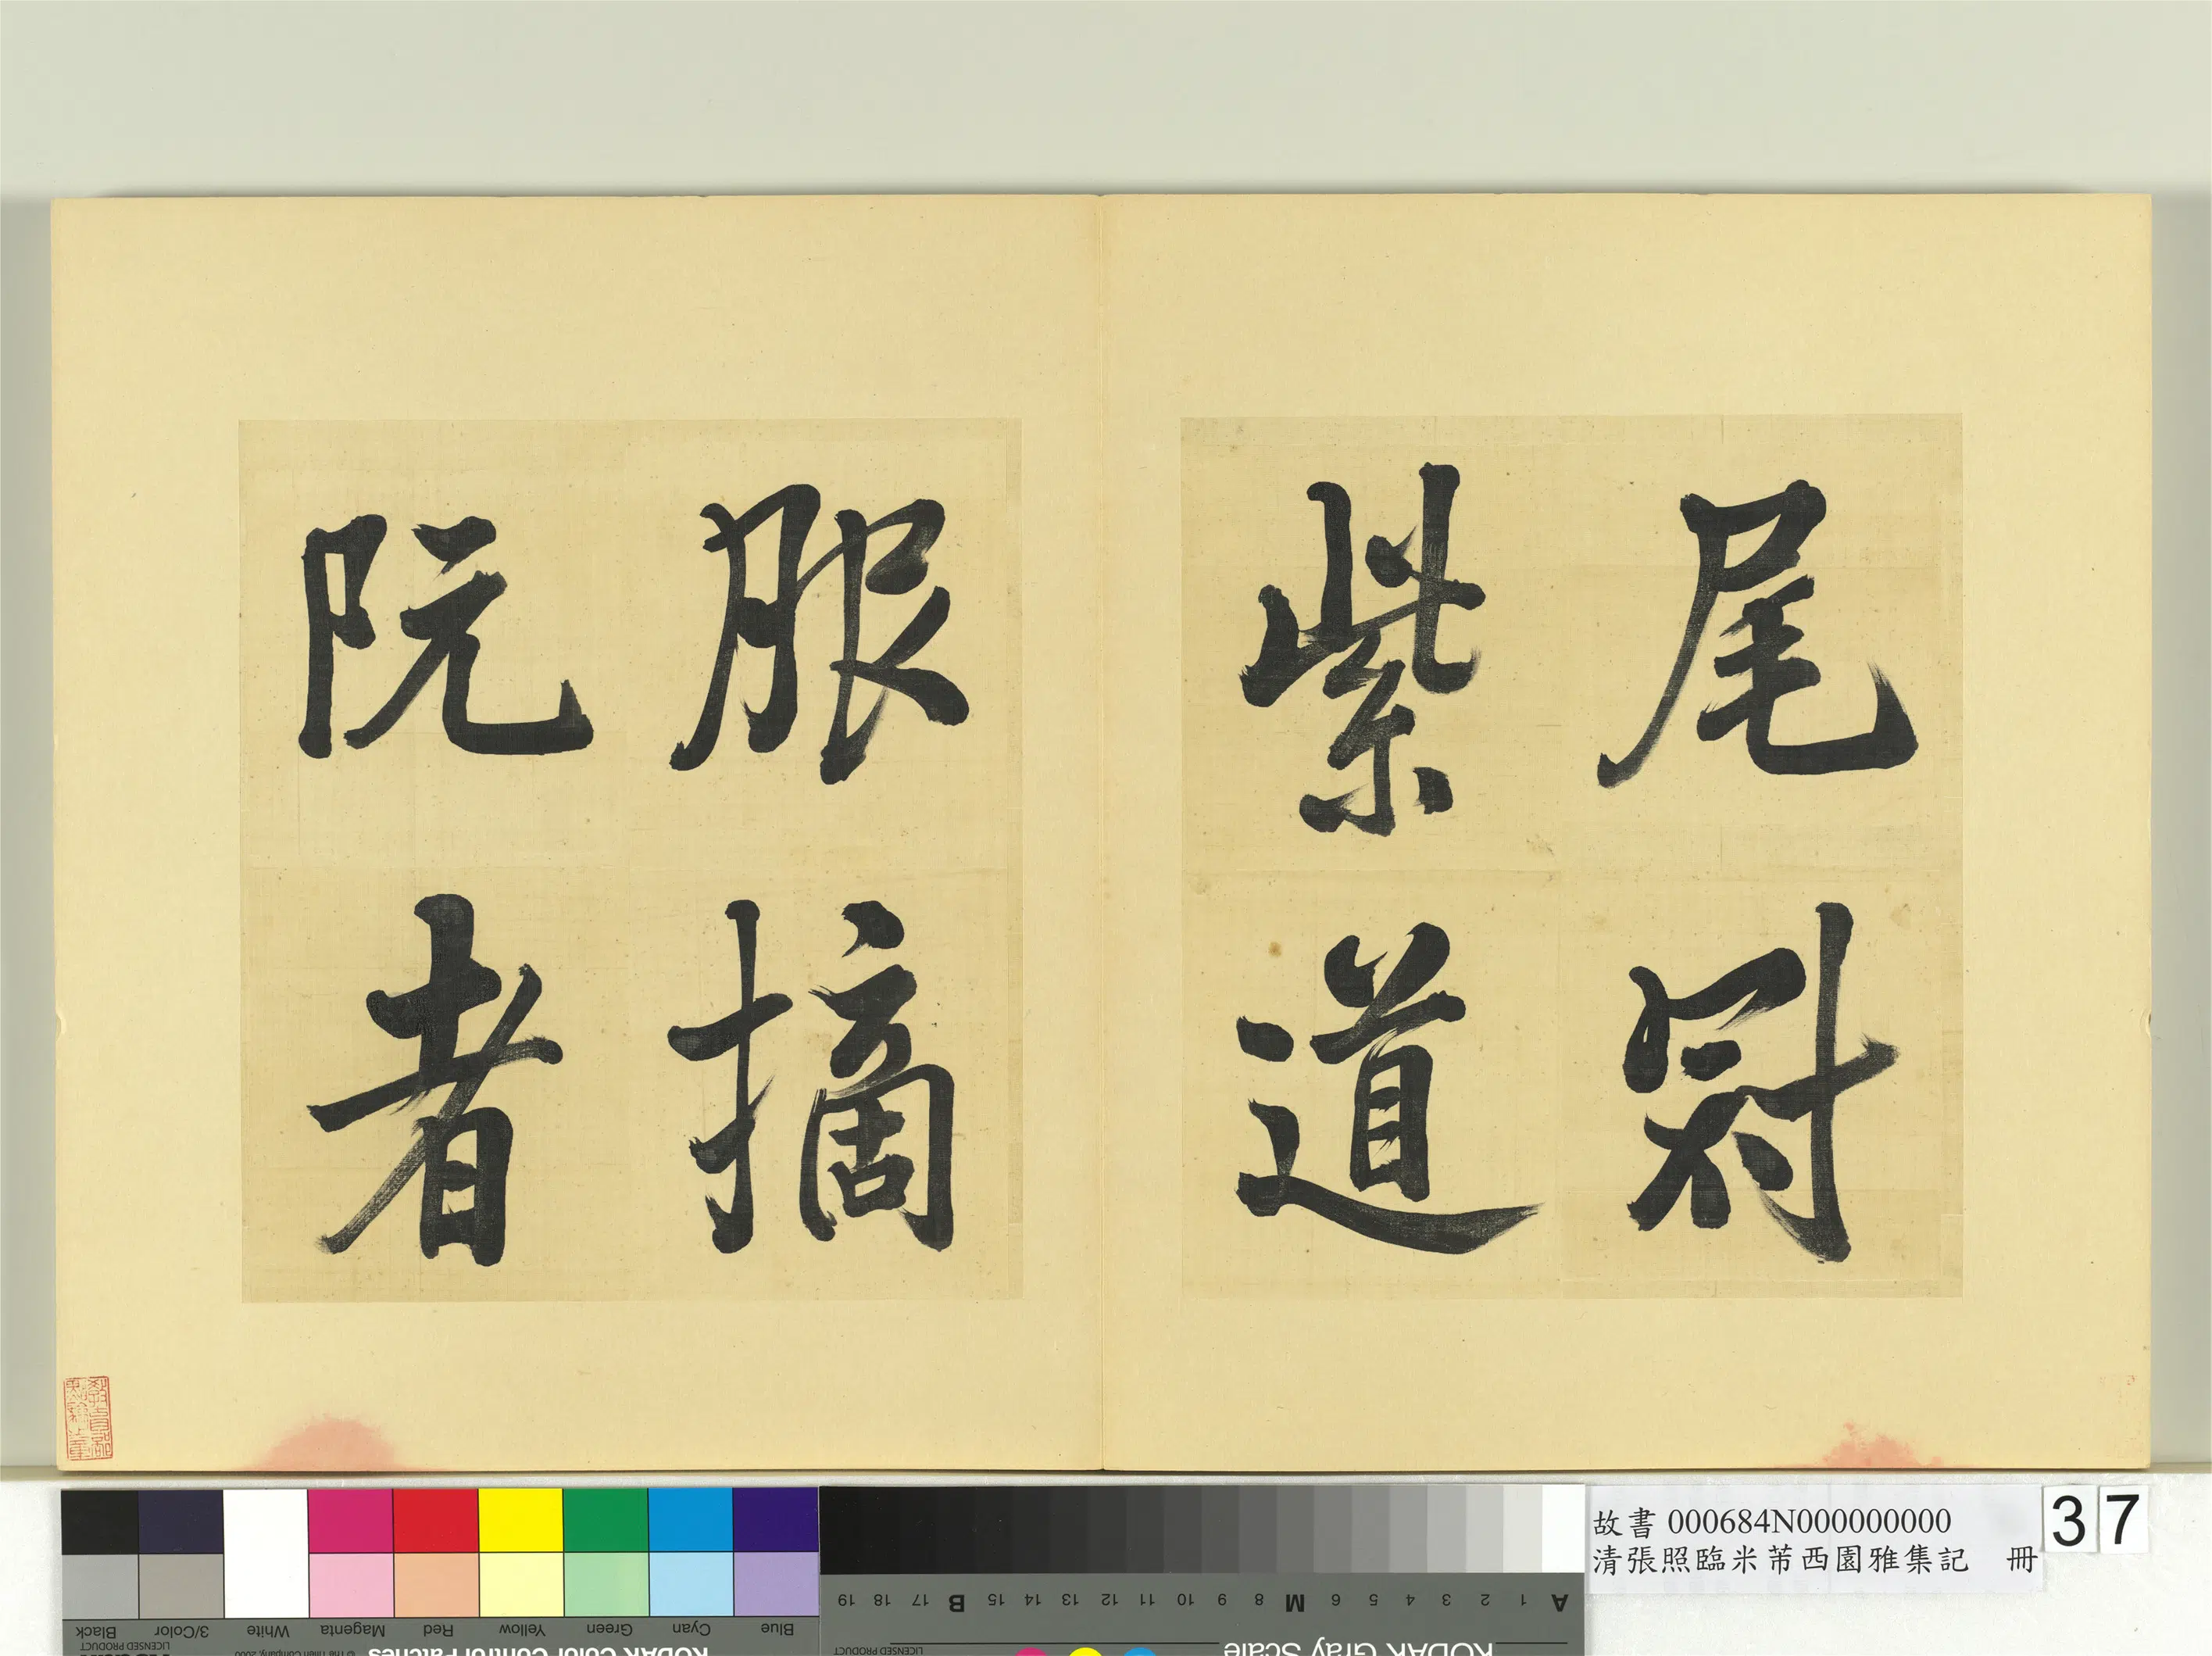 尾冠
紫道
服摘
阮者
故書 000684N000000000
清張照臨米芾西園雅集記 冊
37
Black
3/Color
White
Magenta
Red
Yellow
Green
Cyan
Blue
LICENSED PRODUCT
© The Tiffen Company, 2000
KODAK Color Control Patches
A 1 2 3 4 5 6 M 8 9 10 11 12 13 14 15 B 17 18 19
KODAK Gray Scale
LICENSED PRODUCT